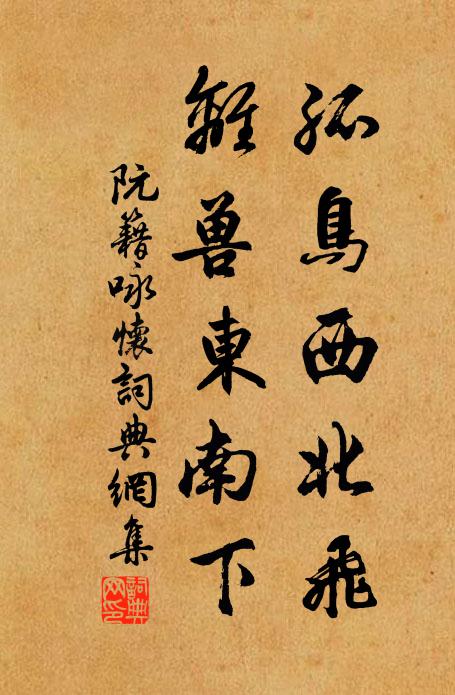 孤鳥西北飛
離兽東南下
阮籍咏懷詞典網集
詞典網印